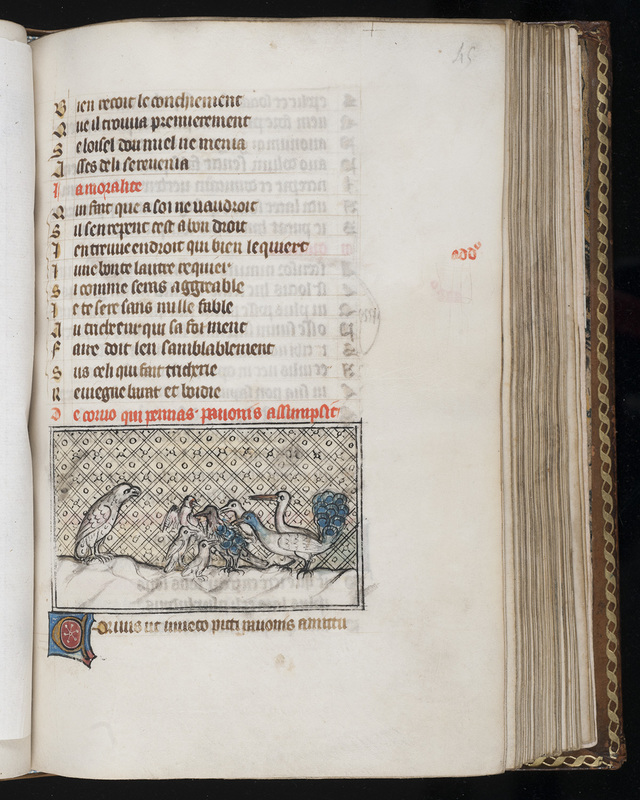 45
B ien recoit le conchiement
Q ue il trouua premierement
S e loisel dou miel ne menia
A sses de li se reuenia
L a moralite
Q ui fait que a soi ne vaudroit
S il sen repent cest a bon droit
L en treuue endroit qui bien le quiert
L une bonte lautre requier
S i comme seras aggreable
I e te sere sans nulle fable
A u tricheeur qui sa foi ment
F aire doit len samblablement
S us celi qui fait tricherie
R euiegne barat et boidie
D e coruo qui pennas pauonis assumpsit
add°
Coruus ut inuento picti pauonis amictu